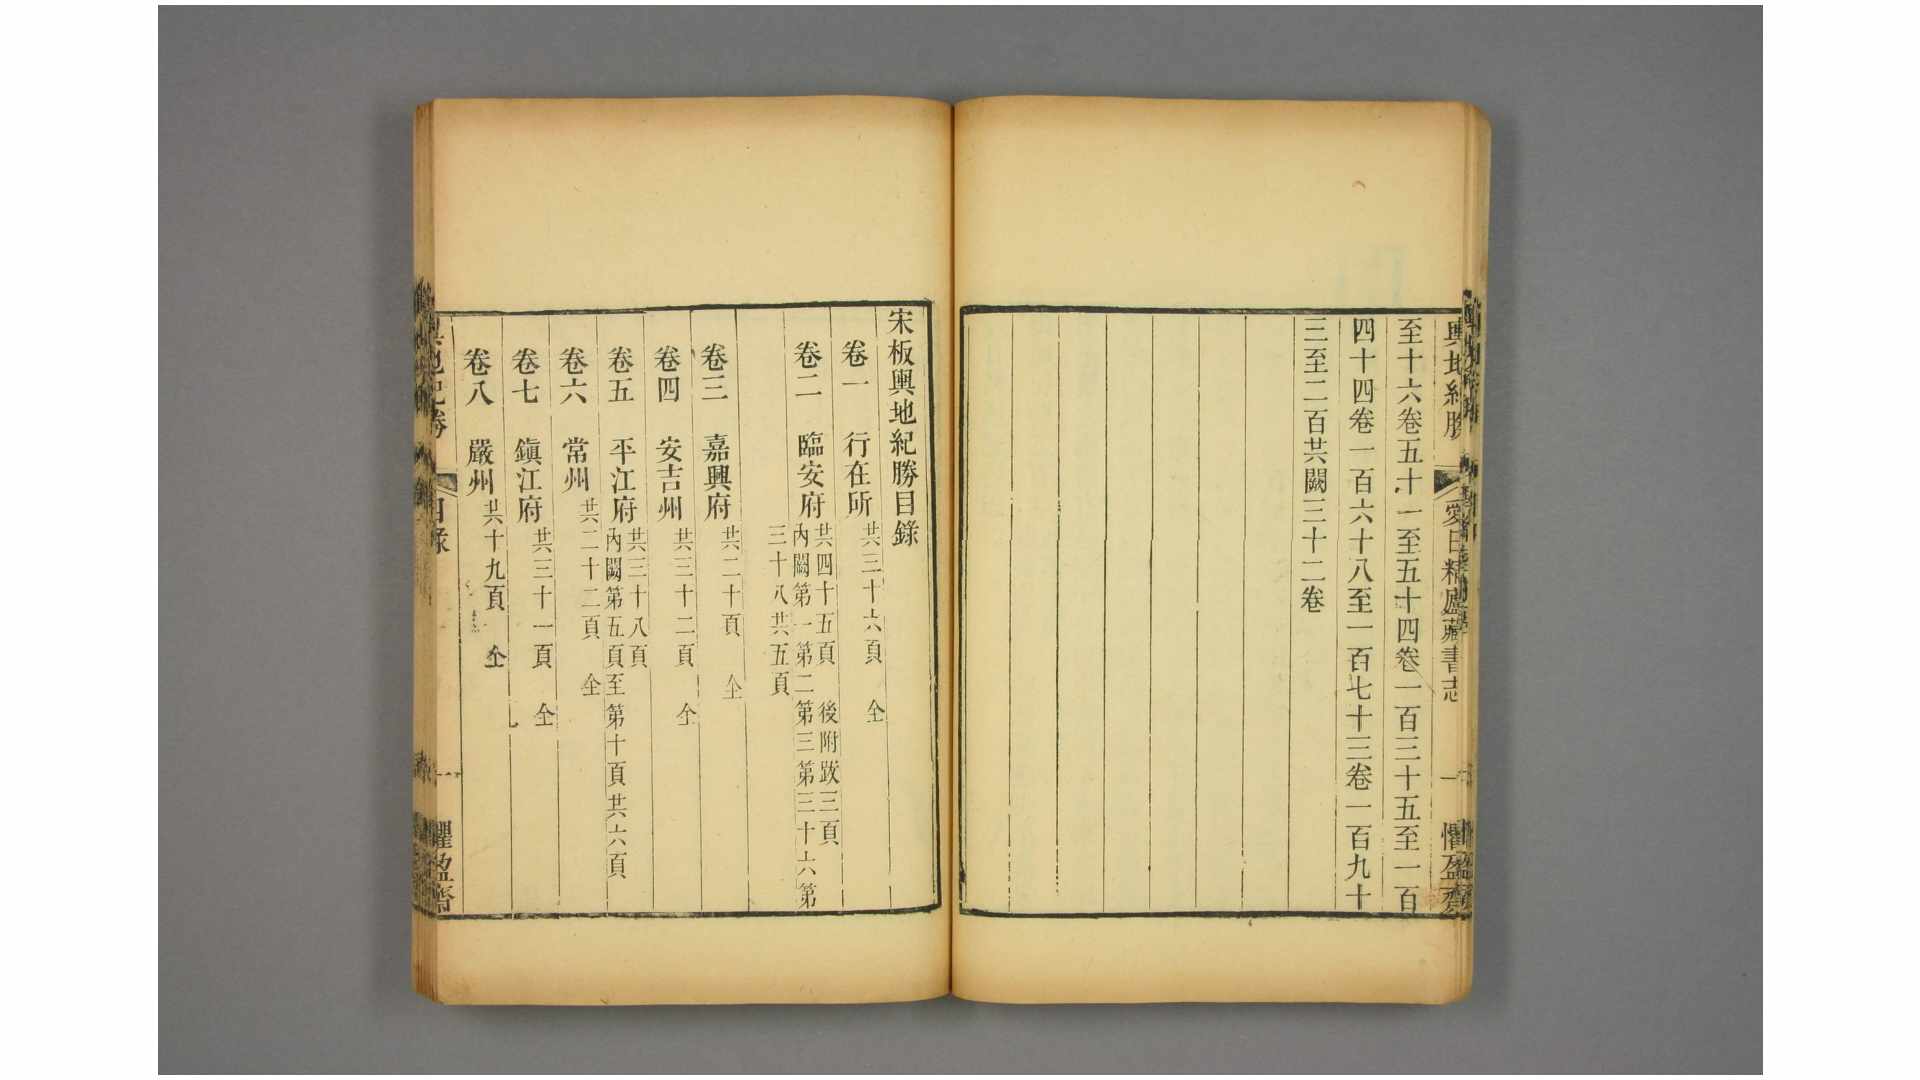 輿地紀勝
愛日精廬藏書志
一
懼盈齋
至十六卷五十一至五十四卷一百三十五至一百
四十四卷一百六十八至一百七十三卷一百九十
三至二百共闕三十二卷
宋板輿地紀勝目錄
卷一 行在所 共三十六頁 全
卷二 臨安府 共四十五頁 後附跋三頁
內闕第一第二第三第三十六第
三十八共五頁
卷三 嘉興府 共二十頁 全
卷四 安吉州 共三十二頁 全
卷五 平江府 共三十八頁
內闕第五頁至第十頁共六頁
卷六 常州 共二十二頁 全
卷七 鎮江府 共三十一頁 全
卷八 嚴州 共十九頁 全
輿地紀勝
目錄
一
懼盈齋